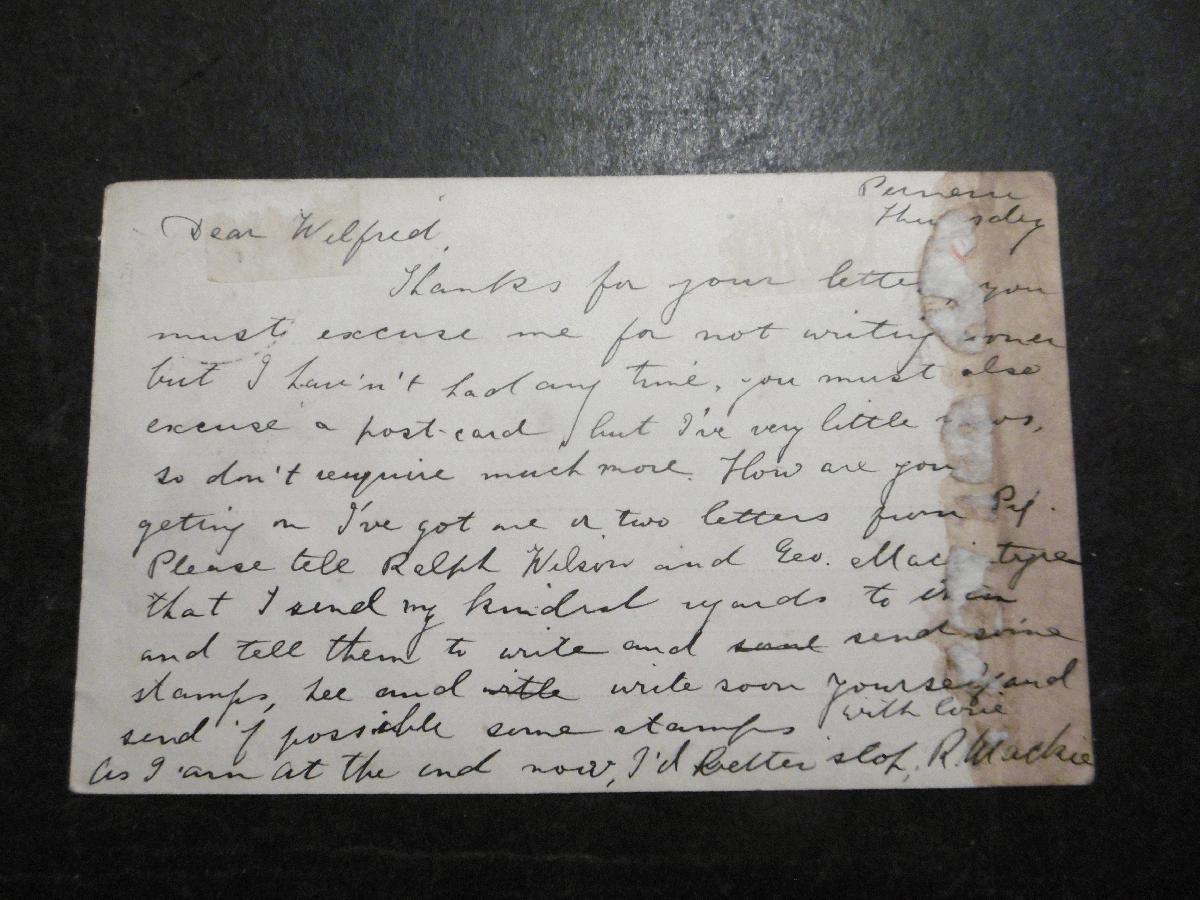 Thursday
Dear Wilfred,
Thanks for your letter, you
must excuse me for not writing sooner
but I hav'n't had any time, you must also
excuse a post-card, but I've very little news,
so don't require much more. How are you
getting on I've got one or two letters from
Please tell Ralph Wilson and Geo. Macintyre
that I send my kindest regards to them
and tell them to write and send some
stamps, and write soon yourself and
send if possible some stamps
with love
As I am at the end now, I'd better stop, R. Mackie